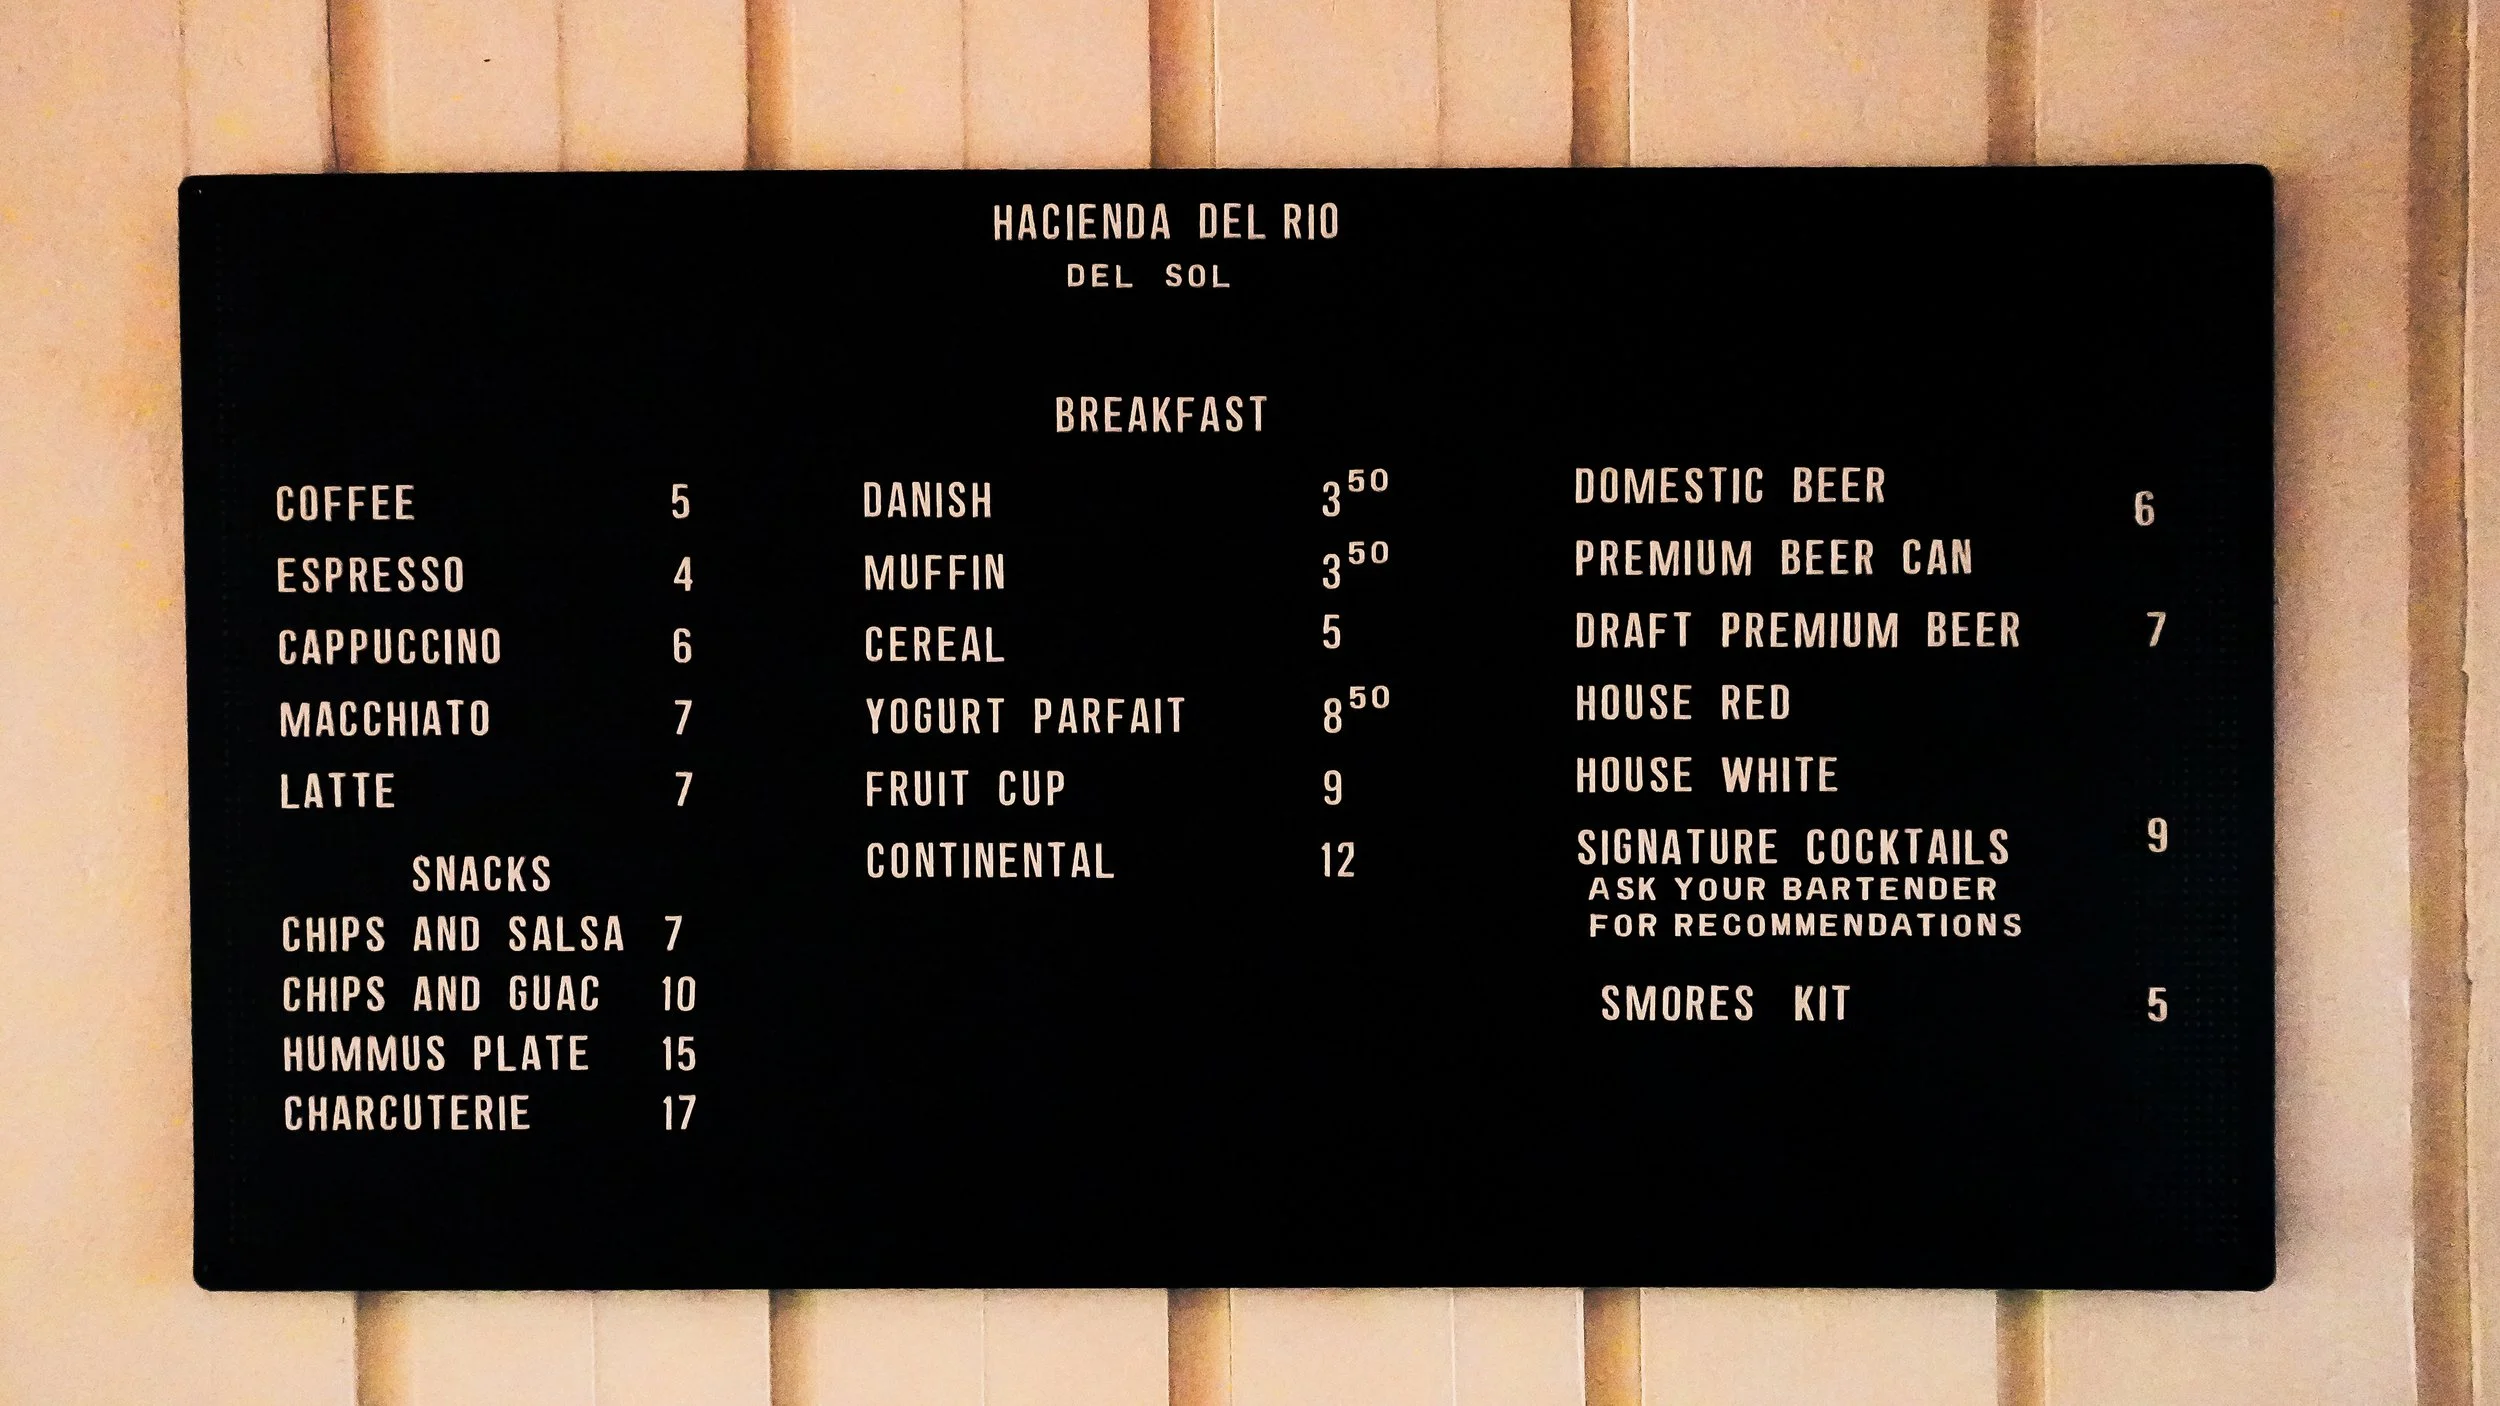 HACIENDA DEL RIO
DEL SOL
BREAKFAST
COFFEE 5
ESPRESSO 4
CAPPUCCINO 6
MACCHIATO 7
LATTE 7
SNACKS
CHIPS AND SALSA 7
CHIPS AND GUAC 10
HUMMUS PLATE 15
CHARCUTERIE 17
DANISH 3 50
MUFFIN 3 50
CEREAL 5
YOGURT PARFAIT 8 50
FRUIT CUP 9
CONTINENTAL 12
DOMESTIC BEER 6
PREMIUM BEER CAN
DRAFT PREMIUM BEER 7
HOUSE RED
HOUSE WHITE
SIGNATURE COCKTAILS 9
ASK YOUR BARTENDER
FOR RECOMMENDATIONS
SMORES KIT 5